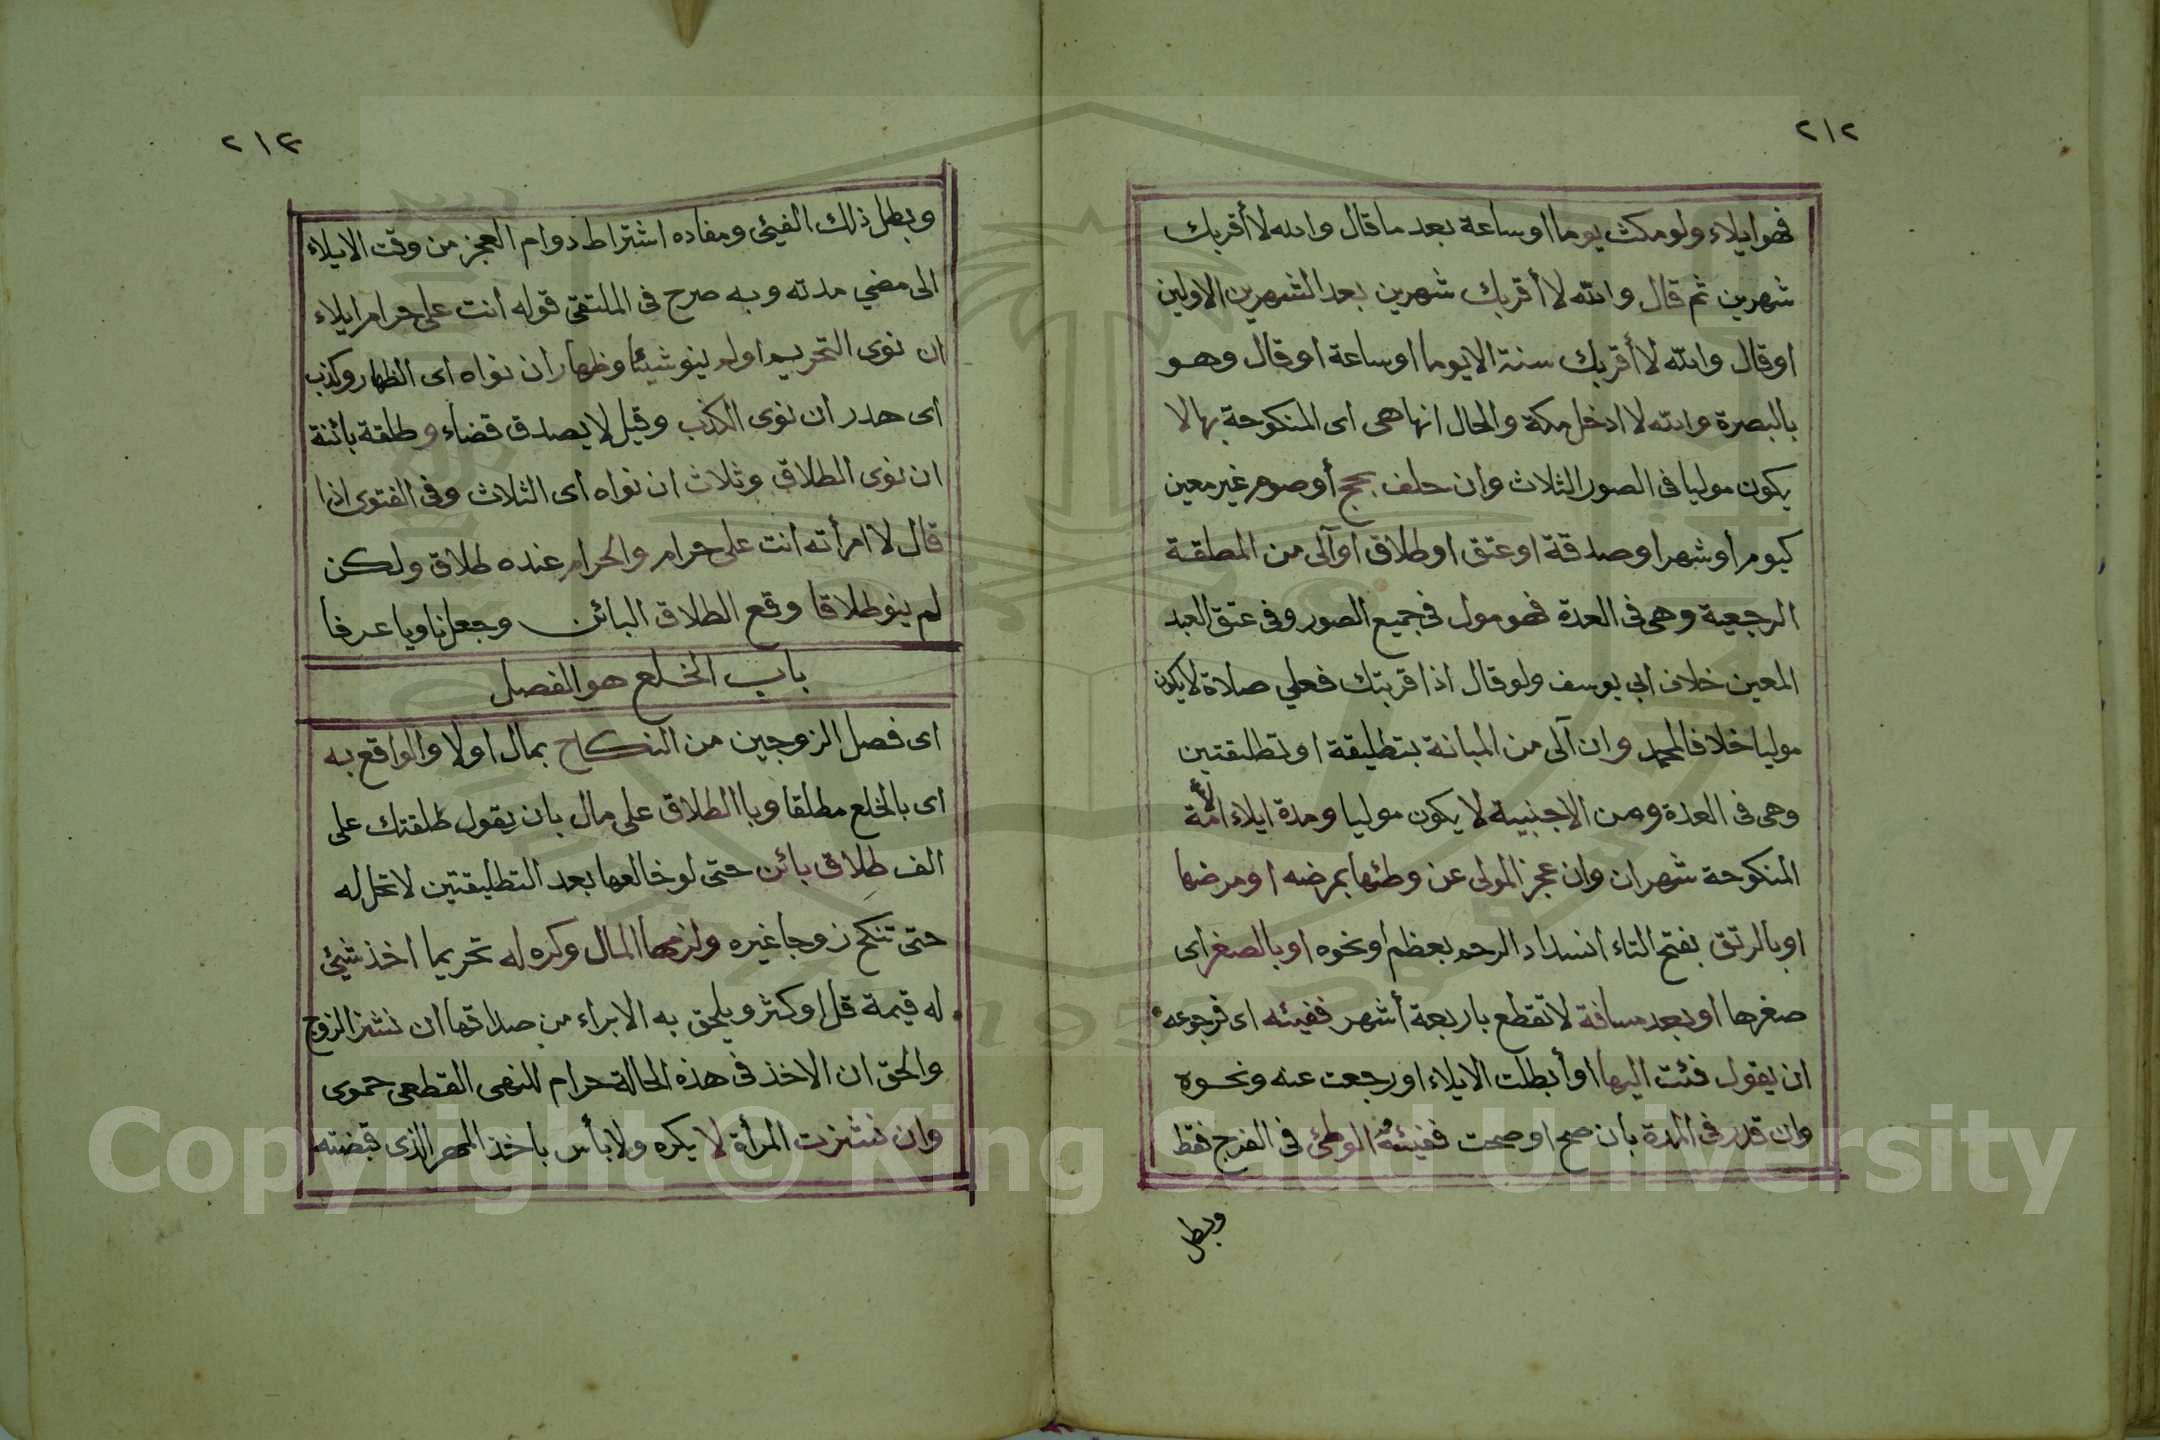 ٢١٢
فهو ايلاء ولو مكث يوما او ساعة بعد ما قال والله لا أقربك
شهرين ثم قال والله لا أقربك شهرين بعد الشهرين الاولين
او قال والله لا أقربك سنة الا يوما او ساعة او قال وهو
بالبصرة والله لا ادخل مكة والحال انها هى اى المنكوحة بها لا
يكون موليا فى الصور الثلاث وان حلف بحج أو صوم غير معين
كيوم او شهر او صدقة او عتق او طلاق او آلى من المطلقة
الرجعية وهى فى العدة فهو مول فى جميع الصور وفى عتق العبد
المعين خلاف ابي يوسف ولو قال اذا قربتك فعلي صلاة لا يكون
موليا خلافا لمحمد وان آلى من المبانة بتطليقة او تطليقتين
وهى فى العدة ومن الاجنبية لا يكون موليا ومدة ايلاء الأمة
المنكوحة شهران وان عجز المولى عن وطئها بمرضه او مرضها
او بالرتق بفتح التاء انسداد الرحم بعظم او نحوه او بالصغر اى
صغرها او بعد مسافة لا تقطع باربعة أشهر ففيئه اى فرجوعه
ان يقول فئت اليها او أبطلت الايلاء او رجعت عنه ونحوه
وان قدر فى المدة بان صح او صحت ففيئه الوطئ فى الفرج فقط
وبطل
٢١٣
وبطل ذلك الفيئ ومفاده اشتراط دوام العجز من وقت الايلاء
الى مضي مدته وبه صرح فى الملتقى قوله أنت على حرام ايلاء
ان نوى التحريم او لم ينو شيئا وظهار ان نواه اى الظهار وكذب
اى هدر ان نوى الكذب وقيل لا يصدق قضاء وطلقة بائنة
ان نوى الطلاق وثلاث ان نواه اى الثلاث وفى الفتوى اذا
قال لا امرأته انت على حرام والحرام عنده طلاق ولكن
لم ينو طلاقا وقع الطلاق البائن وجعل ناويا عرفا
باب الخلع هو الفصل
اى فصل الزوجين من النكاح بمال او لا والواقع به
اى بالخلع مطلقا وبا الطلاق على مال بان يقول طلقتك على
الف طلاق بائن حتى لو خالعها بعد التطليقتين لا تحل له
حتى تنكح زوجا غيره ولزمها المال وكره له تحريما اخذ شيئ
له قيمة قل او كثر ويلحق به الابراء من صداقها ان نشز الزوج
والحق ان الاخذ فى هذه الحالة حرام للنهى القطعى حموى
وان نشزت المرأة لا يكره ولا بأس باخذ المهر الذى قبضته
Copyright © King Saud University
1957